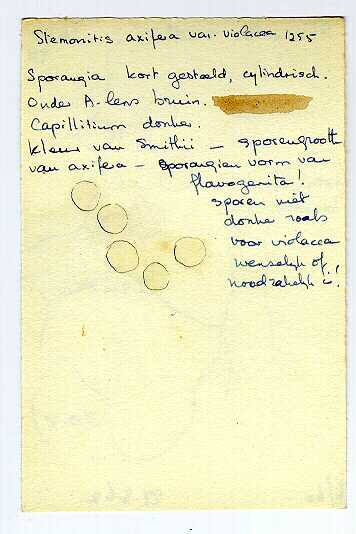 Stemonitis axifera var. violacea 1255
Sporangia kort gesteeld, cylindrisch.
Onder A-lens bruin.
Capillitium donker.
Kleur van Smithii – sporengrootte
van axifera – sporangien vorm van
flavogenita!
sporen niet
donker zoals
voor violacea
wenselijk of
noodzakelijk is!